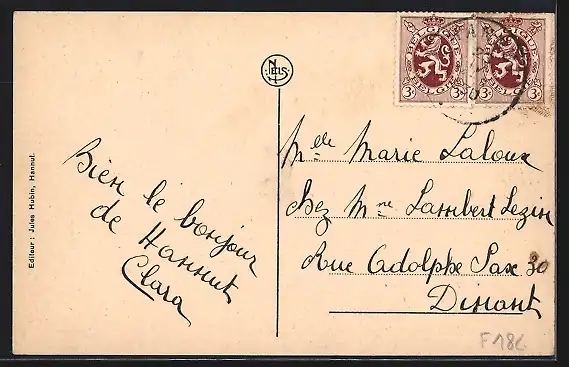 BELGIQUE
BELGIË
3c 3c
BELGIQUE
BELGIË
3c 3c
NELS
Editeur: Jules Hubin, Hannut.
Bien le bonjour
de Hannut
Clara
Melle Marie Laloux
Chez Mme Lambert Lezin
Rue Adolphe Sax 30
Dinant
F18L